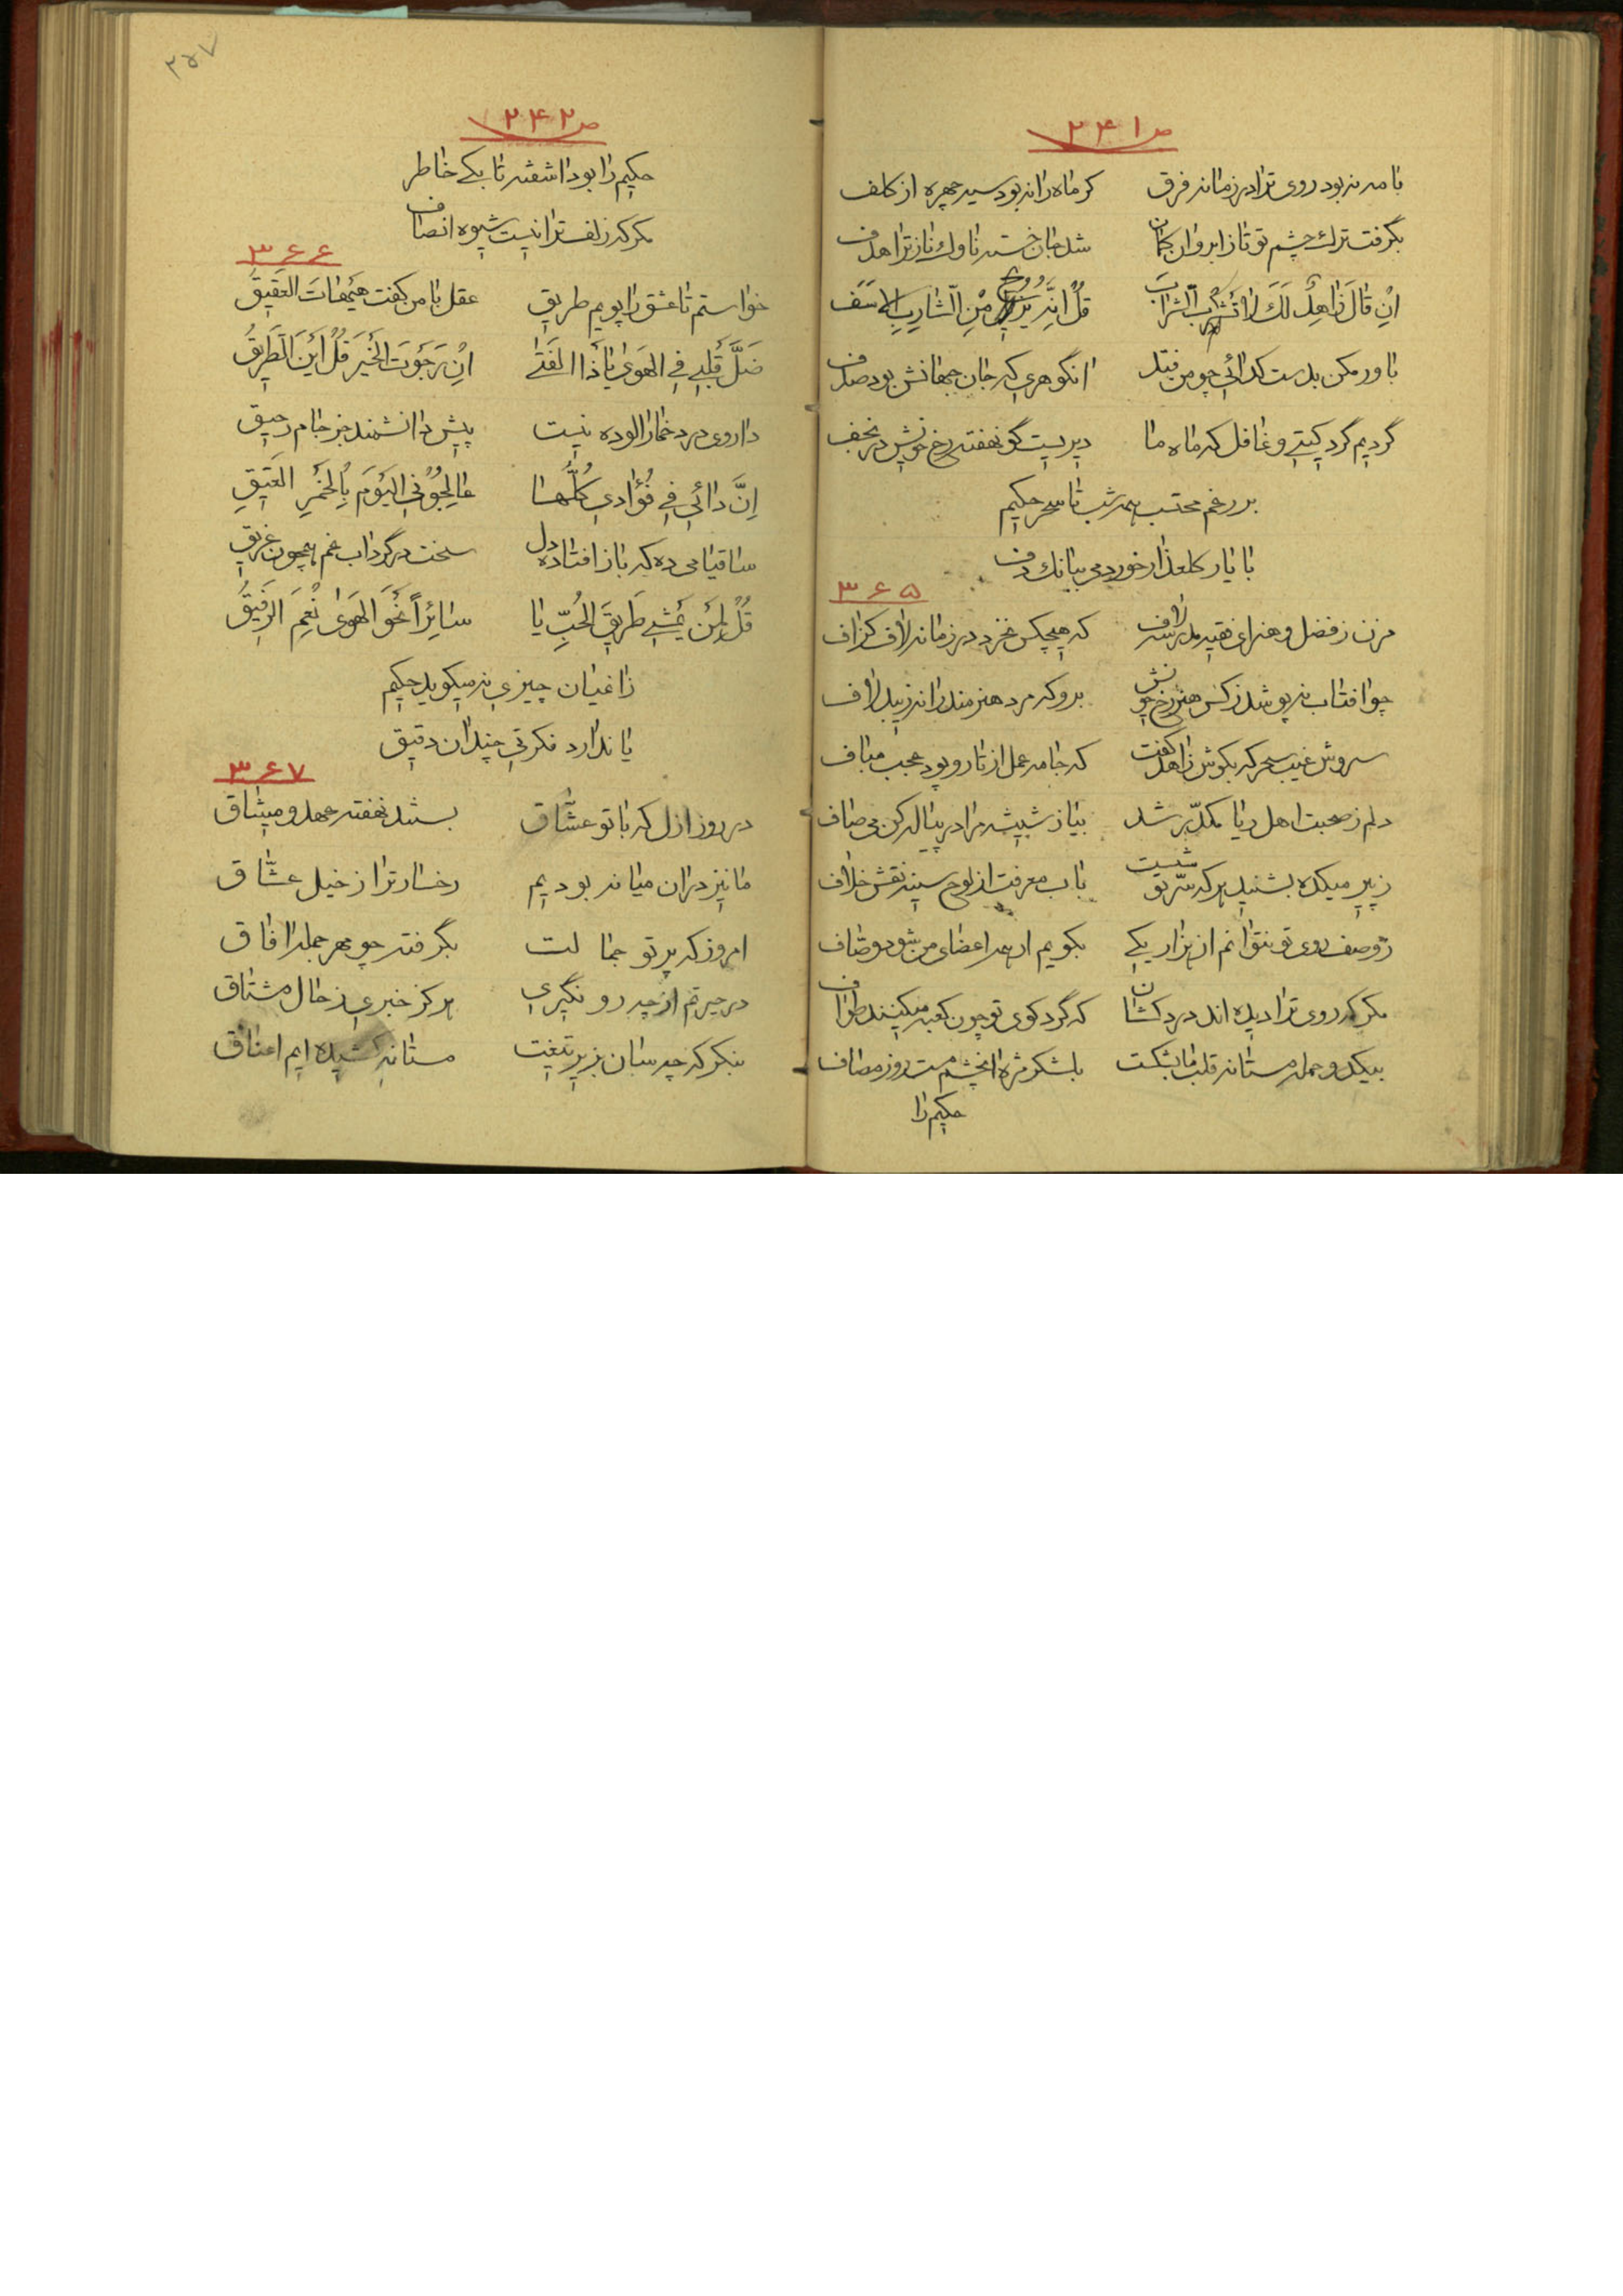 ص ۲۴۱
با مه نه بود روی ترا در زمانه فرق    کر ماه را نه بود سیه چهره از کلف
بگرفت ترك چشم تو تا ز ابروان کمان    شد جان خسته ناوك ناز ترا هدف
اِنْ قٰالَ زاهِلٌ لَكَ لٰا تَشْرَبِ الشَّرٰابَ    قُلْ اِنَّهُ يُرَوِّحُ مِنَ الشّارِبِ الاَسَف
باور مکن بدست کدائی چو من فتد    انگوهری که جان جهانش بود صدف
گردیم گرد کیتی و غافل که ماه ما    دیریست کو نهفته رخ خویش در نجف
بر رغم محتسب همه شب تا سحر حکیم
با یار کلعذار خورد می ببانك دف
۳۶۵
مزن ز فضل و هنر ای فقیه مدرسه لاف    که هیچکس نخرد در زمانه لاف کزاف
چو افتاب نه پوشد ز کس هنر رخ خویش    برو که مرد هنرمند را نه زیبد لاف
سروش غیب سحرکه بکوش زاهد کفت    که جامه عمل از تار و پود عجب مباف
دلم ز صحبت اهل ریا مکدّر شد    بیا ز شیشه مرا در پیاله کن می صاف
ز پیر میکده بشنید هر که سرّ تو شست    باب معرفت از لوح سینه نقش خلاف
ز وصف روی تو نتوانم از هزار یکی    بکویم ار همه اعضای من شود وصّاف
مکر که روی ترا دیده اند درد کشان    که گرد کوی تو چون کعبه میکنند طواف
بیکدو حمله مستانه قلب ما بشکت    بلشکر مژه انچشم مست روز مصاف
حکیم را
۲۵۷
ص ۲۴۲
حکیم را بود اشفته تا بکی خاطر
مکر که زلف ترا نیست شیوه انصاف
۳۶۶
خواستم تا عشق را پویم طریق    عقل با من کفت هَیْهٰاتَ العَقیقُ
ضَلَّ قَلْبی فِی الهَویٰ یٰا ذَا الفَتیٰ    اِنْ رَجَوْتَ الخَیرَ قُلْ اَیْنَ الطَّرِیقُ
داروی درد خمار الوده نیست    پیش دانشمند جز جام رحیق
اِنَّ دٰائی فی فُؤادی کُلُّهٰا    عٰالِجُونِی الیَوْمَ بِالخَمْرِ العَتِیقِ
ساقیا می ده که باز افتاده دل    سخت در گرداب غم همچون غریق
قُلْ لِمَنْ یَمْشی طَریقَ الحُبِّ یٰا    سٰائِراً نَحْوَ الهَویٰ نِعْمَ الرَّفیقُ
زاغیان چیزی نه میکوید حکیم
یا ندارد فکرتی چندان دقیق
۳۶۷
در روز ازل که با تو عشّاق    بستند نهفته عهد و میثاق
ما نیز در ان میانه بودیم    رخسار ترا ز خیل عشّاق
امروز که پرتو جمالت    بگرفته چو مهر جمله افاق
در حیرتم از چه رو نگیری    هرکز خبری ز حال مشتاق
بنکر که چه سان بزیر تیغت    مستانه کشیده ایم اعناق